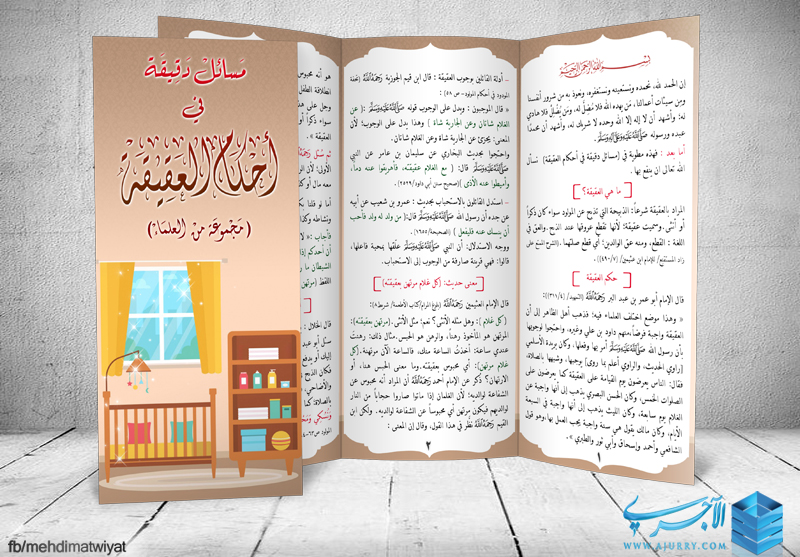 مسائل دقيقة
في
أحكام العقيقة
( مجموعة من العلماء )
بسم الله الرحمن الرحيم
إن الحمد لله، نحمده ونستعينه ونستغفره، ونعوذ به من شرور أنفسنا
ومن سيئات أعمالنا، من يهده الله فلا مضل له، ومن يضلل فلا هادي
له؛ وأشهد أن لا إله إلا الله وحده لا شريك له، وأشهد أن محمدًا
عبده ورسوله ﷺ.
أما بعد : فهذه مطوية في (مسائل دقيقة في أحكام العقيقة) نسأل
الله تعالى أن ينفع بها.
ما هي العقيقة؟
المراد بالعقيقة شرعاً: الذبيحة التي تذبح عن المولود سواء كان ذكراً
أو أنثى. وسميت عقيقة؛ لأنها تقطع عروقها عند الذبح. والعق في
اللغة : القطع، ومنه عق الوالدين؛ أي قطع صلتهما. (الشرح الممتع على
زاد المستقنع/ للإمام ابن عثيمين/ (٧/٤٩٠))
حكم العقيقة
قال الإمام أبو عمر بن عبد البر رحمه الله (التمهيد/ ٤/٣١١):
« وهذا موضع اختلف العلماء فيه؛ فذهب أهل الظاهر إلى أن
العقيقة واجبة فرضاً، منهم داود بن علي وغيره. واحتجوا لوجوبها
بأن رسول الله ﷺ أمر بها وفعلها. وكان بريدة الأسلمي
[راوي الحديث، والراوي أعلم بما روى] يوجبها، وشبهها بالصلاة.
فقال: الناس يعرضون يوم القيامة على العقيقة كما يعرضون على
الصلوات الخمس. وكان الحسن البصري يذهب إلى أنها واجبة عن
الغلام يوم سابعه، وكان الليث يذهب إلى أنها واجبة في السبعة
الأيام. وكان مالك يقول هي سنة واجبة يجب العمل بها، وهو قول
الشافعي وأحمد وإسحاق وأبي ثور والطبري ».
١
– أدلة القائلين بوجوب العقيقة : قال ابن قيم الجوزية رحمه الله (تحفة
المودود في أحكام المولود - ص ٥٨) :
« قال الموجبون : ويدل على الوجوب قوله ﷺ : ( عن
الغلام شاتان وعن الجارية شاة ) وهذا يدل على الوجوب؛ لأن
المعنى: يجزئ عن الجارية شاة وعن الغلام شاتان.
واحتجوا بحديث البخاري عن سليمان بن عامر عن النبي
ﷺ قال: ( مع الغلام عقيقته، فأهريقوا عنه دما،
وأميطوا عنه الأذى )(صحيح سنن أبي داود/٢٥٢٩).
– استدل القائلون بالاستحباب بحديث : عمرو بن شعيب عن أبيه
عن جده أن رسول الله ﷺ قال: (من ولد له ولد فأحب
أن ينسك عنه فليفعل ) (الصحيحة/١٦٥٥)
ووجه الاستدلال: أن النبي ﷺ علقها بمحبة فاعلها،
قالوا: فهي قرينة صارفة من الوجوب إلى الاستحباب.
معنى حديث: (كل غلام مرتهن بعقيقته)
قال الإمام العثيمين رحمه الله (بلوغ المرام/كتاب الأطعمة/ شريط٨):
( كل غلام ): وهل مثله الأنثى؟ نعم: مثل الأنثى. (مرتهن بعقيقته):
المرتهن هو المأخوذ رهنا، والرهن هو الحبس. مثال ذلك: رهنت
عندي ساعة: أخذت الساعة منك. فالساعة الآن مرتهنة. (كل
غلام مرتهن): أي محبوس بعقيقته. وما معنى الحبس هنا، أو
الارتهان؟ ذكر عن الإمام أحمد رحمه الله أن المراد أنه محبوس عن
الشفاعة لوالديه؛ لأن الغلمان إذا ماتوا صاروا حجاباً من النار
لوالديهم فيكون مرتهن أي محبوساً عن الشفاعة لوالديه. ولكن ابن
القيم رحمه الله نظر في هذا القول، وقال إن المعنى :
٢
fb/mehdimatwiyat
الآجري
WWW.AJURRY.COM